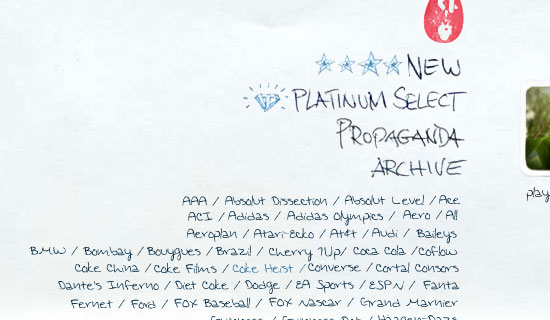 NEW
PLATINUM SELECT
PROPAGANDA
ARCHIVE
AAA / Absolut Dissection / Absolut Level / Ace
ACI / Adidas / Adidas Olympics / Aero / All
Aeroplan / Atari-Ecko / At&t / Audi / Baileys
BMW / Bombay / Bouygues / Brazil / Cherry 7Up/ Coca Cola / Coflow
Coke China / Coke Films / Coke Heist / Converse / Cortal Consors
Dante's Inferno / Diet Coke / Dodge / EA Sports / ESPN / Fanta
Fernet / Ford / FOX Baseball / FOX Nascar / Grand Marnier
play